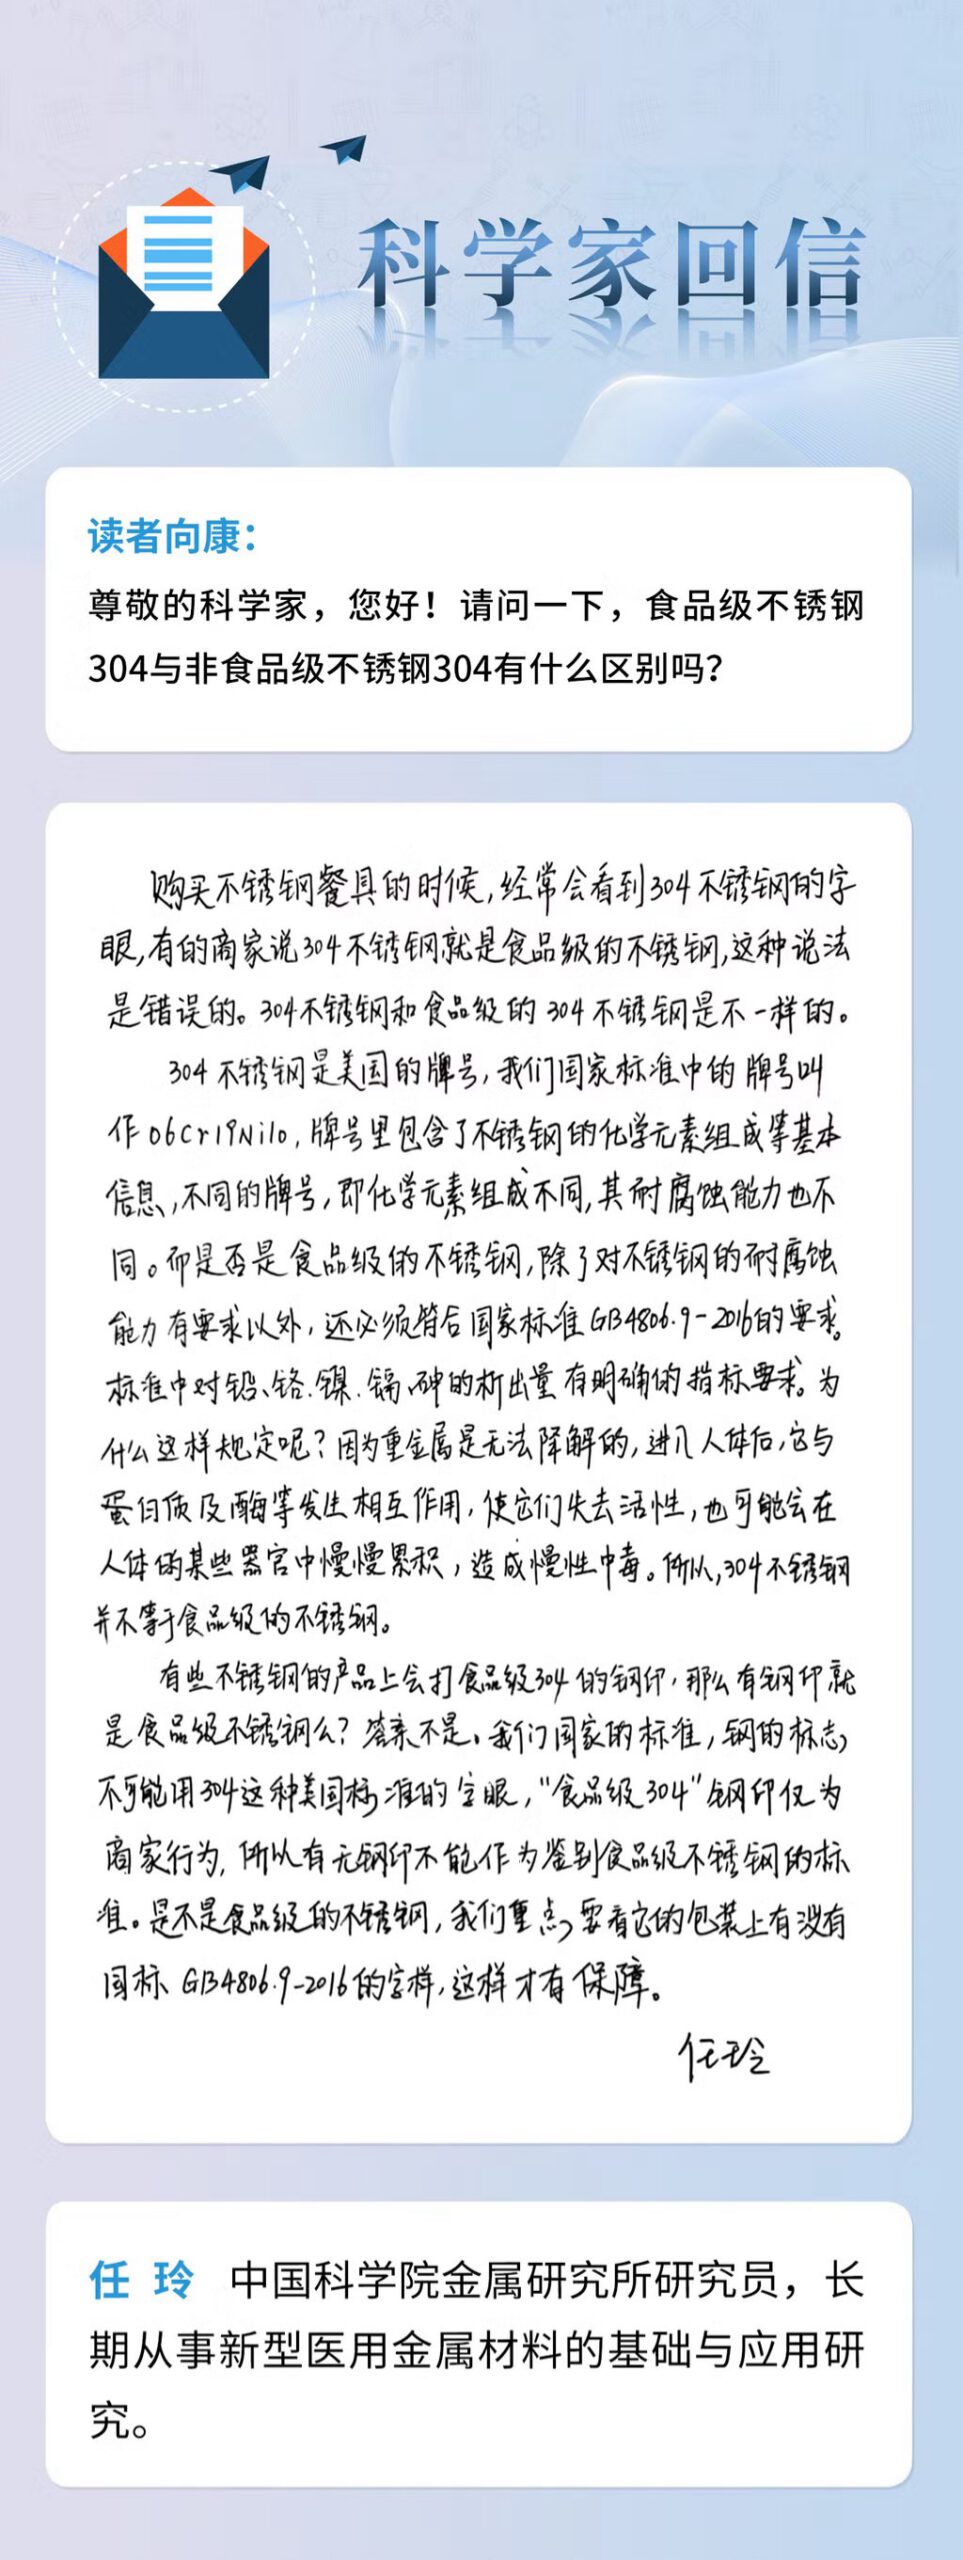 科学家回信
读者向康：
尊敬的科学家，您好！请问一下，食品级不锈钢
304与非食品级不锈钢304有什么区别吗？
购买不锈钢餐具的时候，经常会看到304不锈钢的字
眼，有的商家说304不锈钢就是食品级的不锈钢，这种说法
是错误的。304不锈钢和食品级的304不锈钢是不一样的。
304不锈钢是美国的牌号，我们国家标准中的牌号叫
作06Cr19Ni10，牌号里包含了不锈钢的化学元素组成等基本
信息，不同的牌号，即化学元素组成不同，其耐腐蚀能力也不
同。而是否是食品级的不锈钢，除了对不锈钢的耐腐蚀
能力有要求以外，还必须符合国家标准GB4806.9-2016的要求。
标准中对铅、铬、镍、镉、砷的析出量有明确的指标要求。为
什么这样规定呢？因为重金属是无法降解的，进入人体后，它与
蛋白质及酶等发生相互作用，使它们失去活性，也可能会在
人体的某些器官中慢慢累积，造成慢性中毒。所以，304不锈钢
并不等于食品级的不锈钢。
有些不锈钢的产品上会打食品级304的钢印，那么有钢印就
是食品级不锈钢么？答案不是。我们国家的标准，钢的标志，
不可能用304这种美国标准的字眼，“食品级304”钢印仅为
商家行为，所以有无钢印不能作为鉴别食品级不锈钢的标
准。是不是食品级的不锈钢，我们重点，要看它的包装上有没有
国标 GB4806.9-2016的字样，这样才有保障。
任玲
任 玲 中国科学院金属研究所研究员，长
期从事新型医用金属材料的基础与应用研
究。